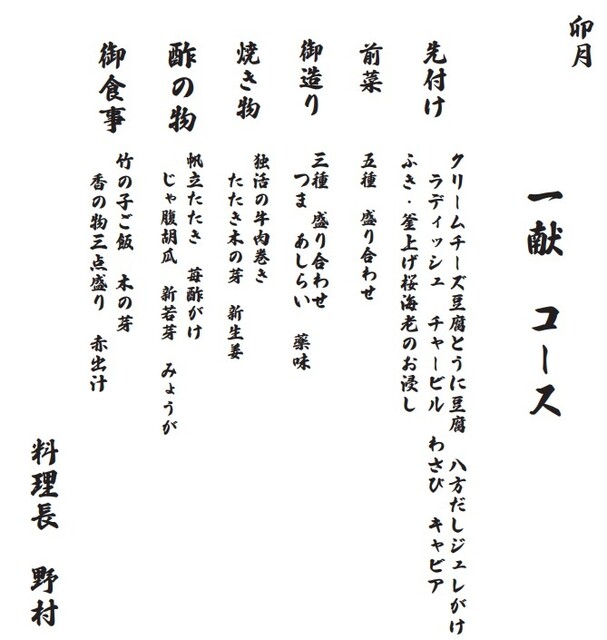 卯月
一献 コース
先付け
クリームチーズ豆腐とうに豆腐 八方だしジュレがけ
ラディッシュ チャービル わさび キャビア
ふき・釜上げ桜海老のお浸し
前菜
五種 盛り合わせ
御造り
三種 盛り合わせ
つま あしらい 薬味
焼き物
独活の牛肉巻き
たたき木の芽 新生姜
酢の物
帆立たたき 苺酢がけ
じゃ腹胡瓜 新若芽 みょうが
御食事
竹の子ご飯 木の芽
香の物三点盛り 赤出汁
料理長 野村